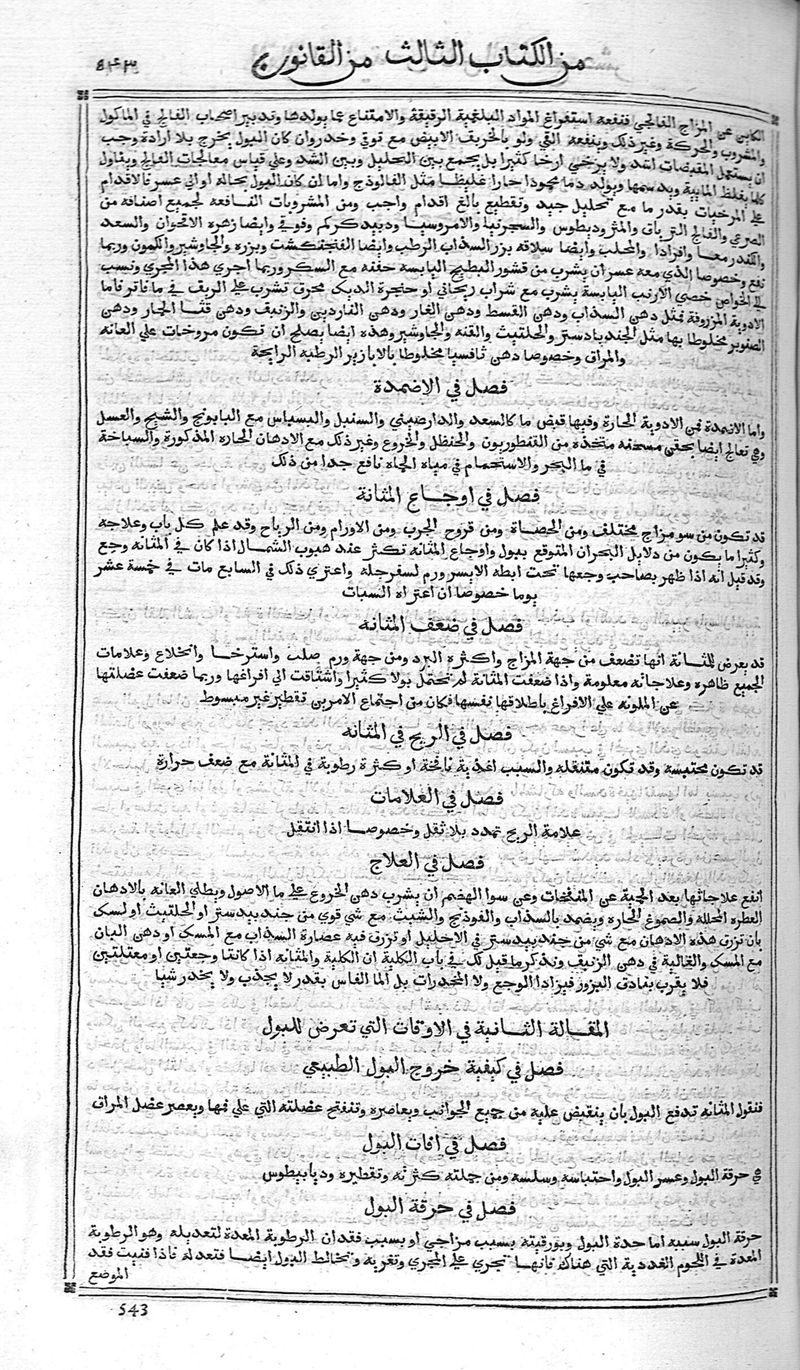 من الكتاب الثالث من القانون
٥٤٣
الكاين عن المزاج الفالجي فينفعه استفراغ المواد البلغمية الرقيقة والامتناع عما يولدها وتدبير اصحاب الفالج في الماكول
والمشروب والحركة وغير ذلك وينفعه القي ولو بالخربق الابيض مع توقي وحذر وان كان البول يخرج بلا ارادة وجب
ان يستعمل المقبضات اشد ولا يرخي ارخا كثيرا بل يجمع بين التحليل وبين الشد وعلي قياس معالجات الفالج ويتناول
كلما يغلظ المايية ويدسمها ويولد دما محمودا حارا غليظا مثل الفالوذج واما ان كان البول بحاله او الي عسر فالاقدام
علي المرخيات بقدر ما مع تحليل جيد وتقطيع بالغ اقدام واجب ومن المشروبات النافعه لجميع اصنافه من
الصرعي والفالج الترياق والمثروديطوس والسجرنيا والامروسيا ودبيد كركم وفوقي وايضا زهره الاقحوان والسعد
والكندر معا وافرادا والمحلب وايضا سلاقه بزر السذاب الرطب وايضا الفنجنكشت وبزره والجاوشير والكمون وربما
نفع وخصوصا الذي معه عسر ان يشرب من قشور البطيخ اليابسه حفنه مع السكر وربما اجري هذا المجري ونسب
الي الخواص خصي الارنب اليابسة يشرب مع شراب ريحاني او حنجرة الديك محرق تشرب علي الريق في ما فاتر فاما
الادوية المزروقة فمثل دهن السذاب ودهن القسط ودهن الغار ودهن الناردين والزنبق ودهن قثا الحمار ودهن
الصنوبر مخلوطا بها مثل الجندبادستر والحلتيث والقنه والجاوشير وهذه ايضا يصلح ان تكون مروخات علي العانه
والمراق وخصوصا دهن ثافسيا مخلوطا بالابازير الرطبه الرايحة
فصل في الاضمدة
واما الاضمدة فمن الادوية الحارة وفيها قبض ما كالسعد والدارصيني والسنبل والبسباس مع البابونج والشيح والعسل
وفي تعالج ايضا بحقن مسخنه متخذه من القنطوريون والحنظل والخروع وغير ذلك مع الادهان الحاره المذكورة والسباحة
في ما البحر والاستحمام في مياه الحماه نافع جدا من ذلك
فصل في اوجاع المثانة
قد تكون من سو مزاج مختلف ومن الحصاة ومن قروح الجرب ومن الاورام ومن الرياح وقد علم كل باب وعلاجه
وكثيرا ما يكون من دلايل البحران المتوقع ببول واوجاع المثانه تكثر عند هبوب الشمال اذا كان في المثانه وجع
وقد قيل انه اذا ظهر بصاحب وجعها تحت ابطه الايسر ورم لسفرجله واعتري ذلك في السابع مات في خمسة عشر
يوما خصوصا ان اعتراه السبات
فصل في ضعف المثانه
قد يعرض للمثانة انها تضعف من جهة المزاج واكثره البرد ومن جهة ورم صلب واسترخا وانخلاع وعلامات
الجميع ظاهره وعلاجاته معلومة واذا ضعفت المثانة لم تحتمل بولا كثيرا واشتاقت الي افراغها وربما ضعفت عضلتها
عن المعونه علي الافراغ باطلاقها نفسها فكان من اجتماع الامرين تقطير غير مبسوط
فصل في الريح في المثانه
قد تكون محتبسه وقد تكون منتقله والسبب اغذية نافخة او كثرة رطوبة في المثانة مع ضعف حرارة
فصل في العلامات
علامة الريح تمدد بلا ثقل وخصوصا اذا انتقل
فصل في العلاج
انفع علاجاتها بعد الحمية عن المنفخات وعن سوا الهضم ان يشرب دهن الخروع علي ما الاصول ويطلي العانه بالادهان
العطره المحلله والصموغ الحاره ويضمد بالسذاب والفوذنج والشبث مع شي قوي من جندبيدستر او الحلتيث او لسك
بان تزرق هذه الادهان مع شي من جندبيدستر في الاحليل او تزرق فيه عصارة السذاب مع المسك او دهن البان
مع المسك والغالية في دهن الزنبق وتذكر ما قيل لك في باب الكلية ان الكلية والمثانه اذا كانتا وجعتين او معتلتين
فلا يقرب بنادق البزور فيزاد الوجع ولا المخدرات بل الما الفاس بقدر لا يجذب ولا يخدر شيا
المقالة الثانية في الاوقات التي تعرض للبول
فصل في كيفية خروج البول الطبيعي
فنقول المثانه تدفع البول بان ينقبض عليه من جميع الجوانب ويعاصره وتنفتح عضلته التي علي فمها ويعصر عضل المراق
فصل في افات البول
هي حرقة البول وعسر البول واحتباسه وسلسه ومن جملته كثرته وتقطيره وديابيطوس
فصل في حرقة البول
حرقة البول سببه اما حدة البول وبورقيته بسبب مزاجي او بسبب فقدان الرطوبة المعدة لتعديله وهو الرطوبة
المعدة في اللحوم الغددية التي هناك فانها تجري علي المجري وتغريه وتخالط البول ايضا فتعدله فاذا فنيت فقد
الموضع
543